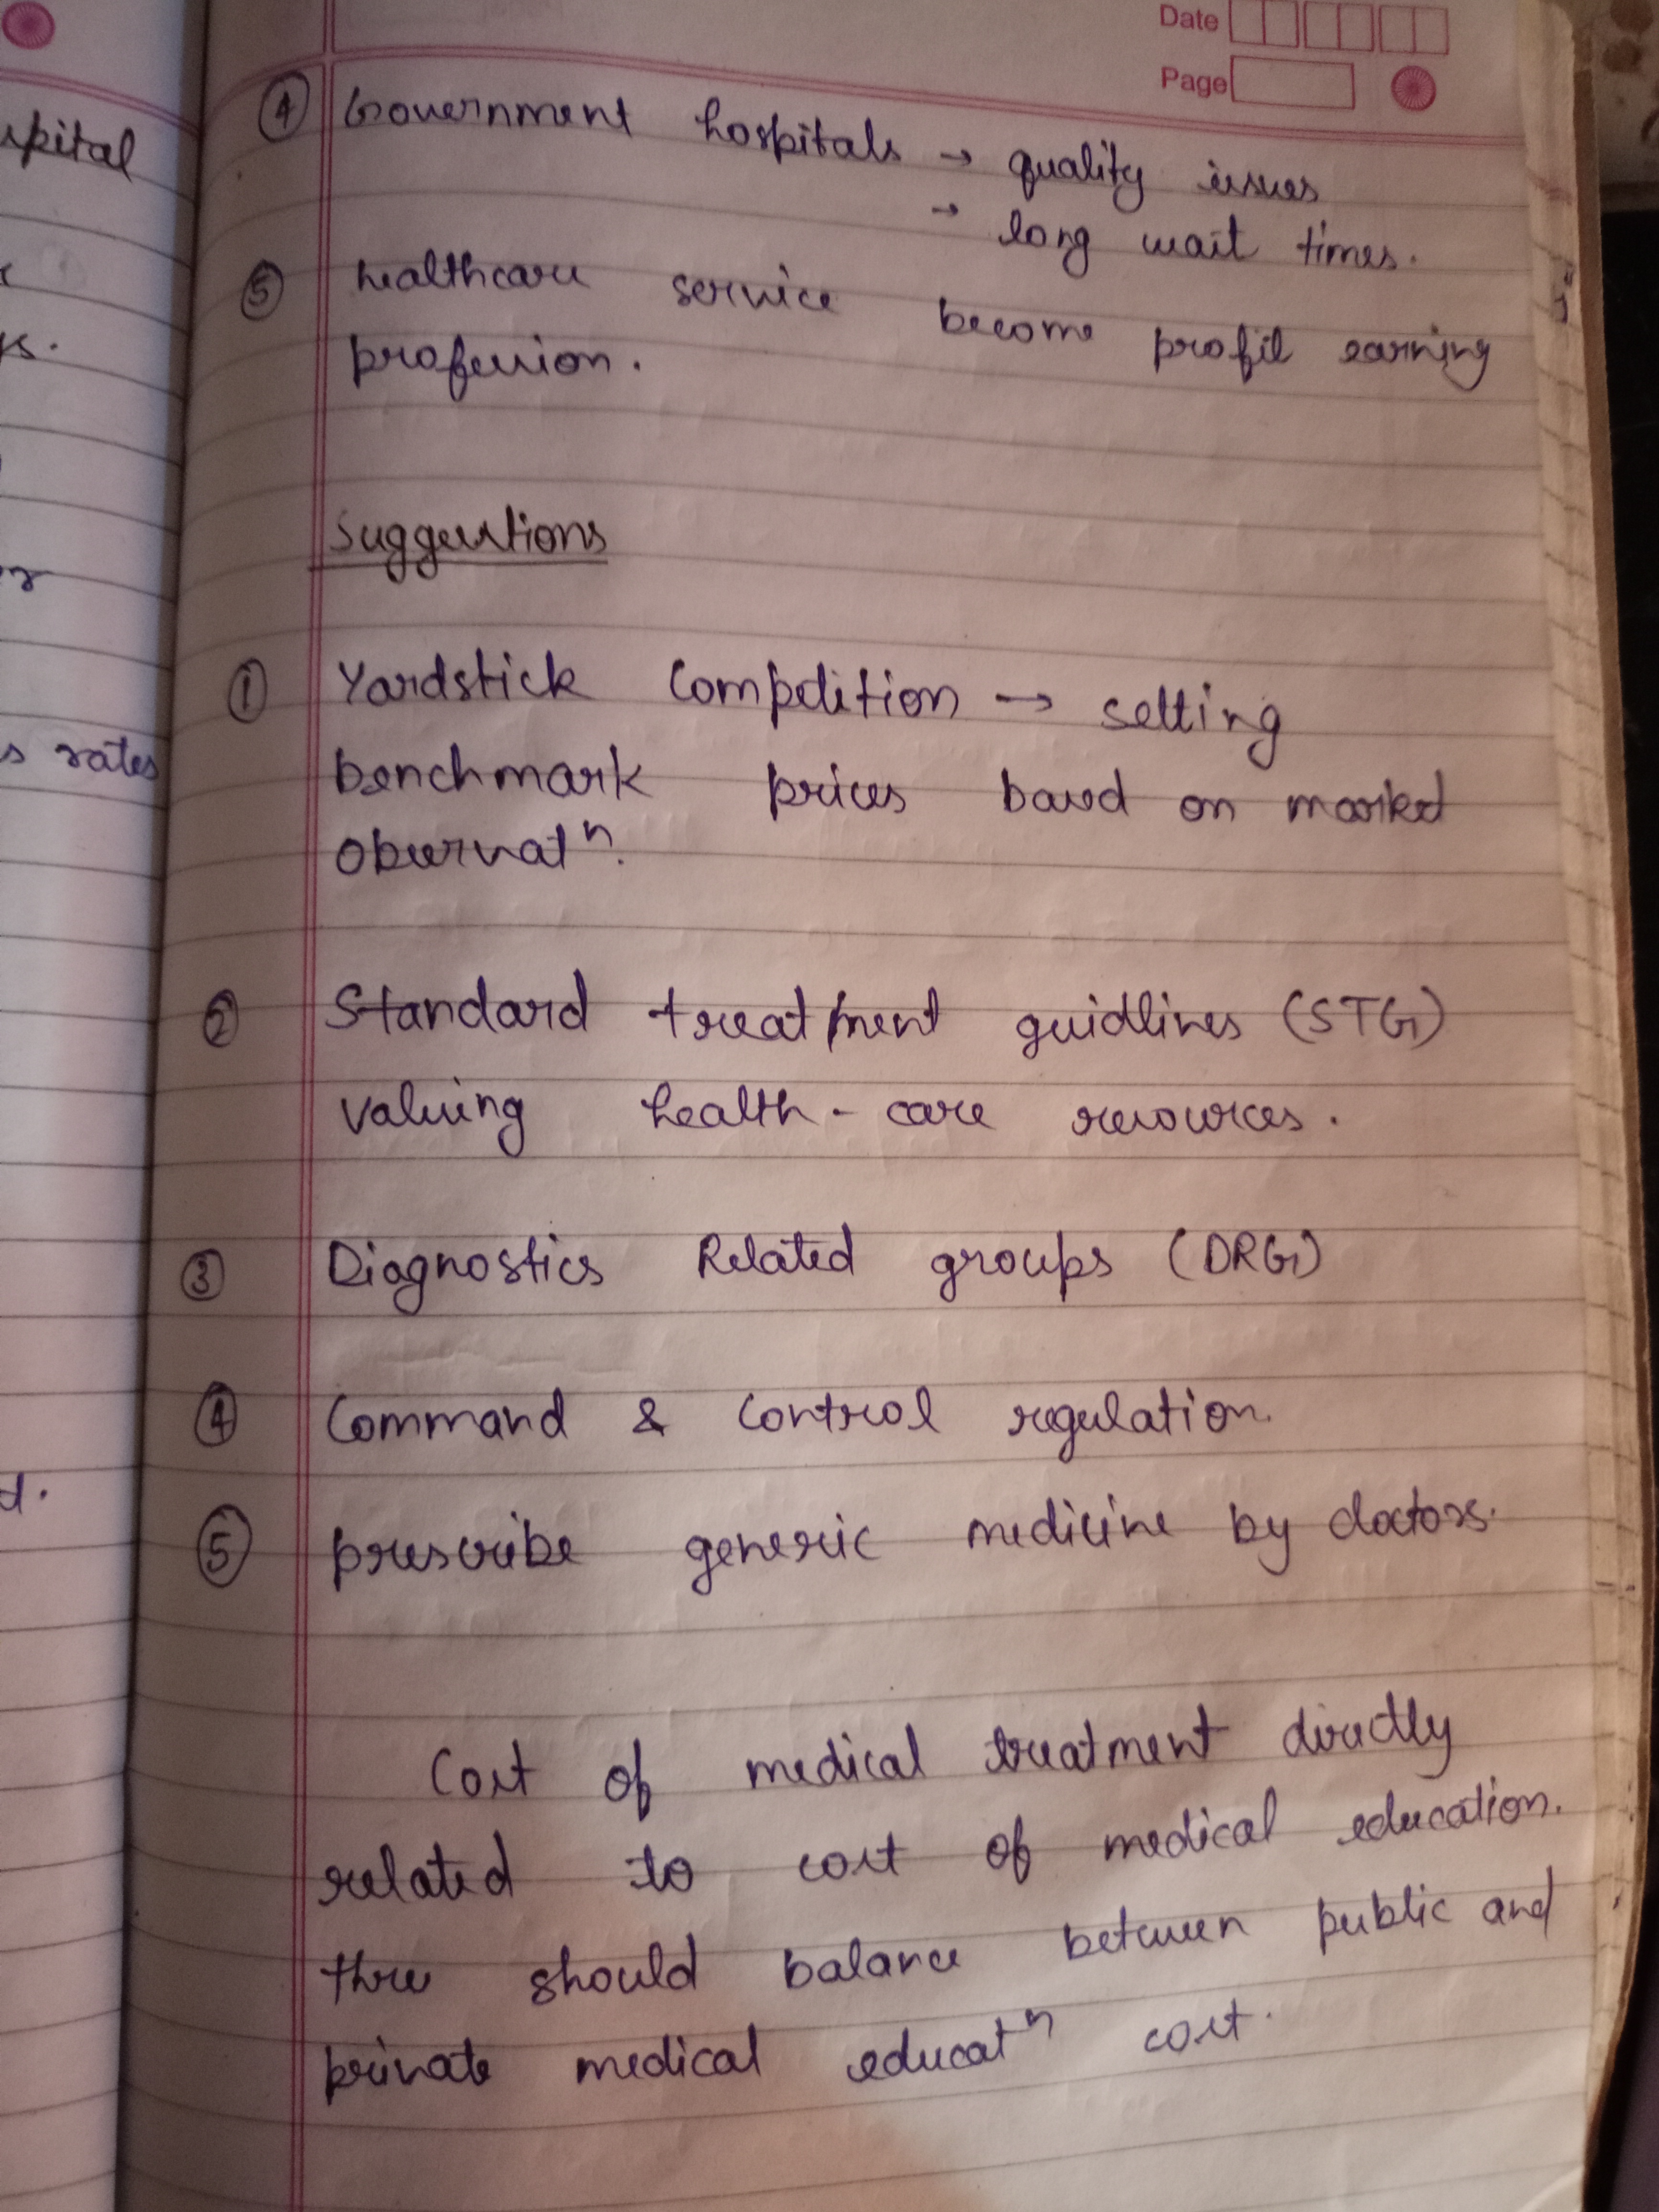 Date
Page
④ Government hospitals → quality issues
→ long wait times.
⑤ healthcare service become profit earning
profession.
Suggestions
① Yardstick Competition → setting
benchmark prices based on market
Observatⁿ.
② Standard treatment guidlines (STG)
valuing health-care resources.
③ Diagnostics Related groups (DRG)
④ Command & Control regulation.
⑤ prescribe generic medicine by doctors.
Cost of medical treatment directly
related to cost of medical education.
there should balance between public and
private medical educatⁿ cost.
spital
s rates